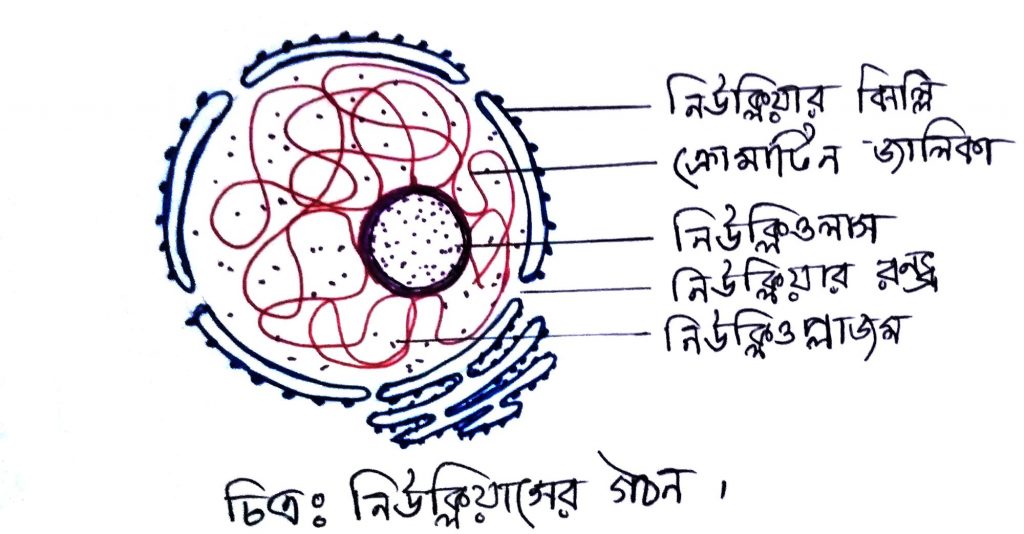 নিউক্লিয়ার ঝিল্লি
ক্রোমাটিন জালিকা
নিউক্লিওলাস
নিউক্লিয়ার রন্ধ্র
নিউক্লিওপ্লাজম
চিত্রঃ নিউক্লিয়াসের গঠন ।